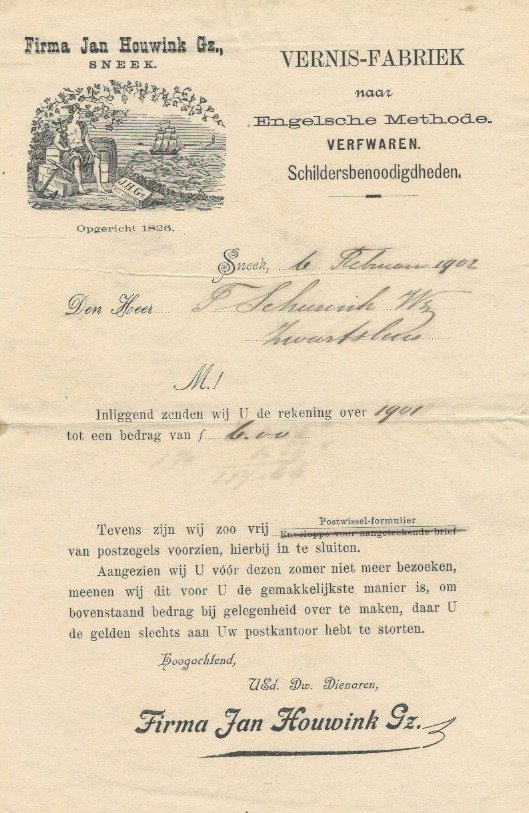 Firma Jan Houwink Gz.,
SNEEK.
J.H.Gz
Opgericht 1826.
VERNIS-FABRIEK
naar
Engelsche Methode.
VERFWAREN.
Schildersbenoodigdheden.
Sneek, 6 Februari 1902
Den Heer F Schuurink Wz
Zwartsluis
M.!
Inliggend zenden wij U de rekening over 1901
tot een bedrag van f 6.00
Tevens zijn wij zoo vrij Postwissel-formulier
Enveloppe voor aangeteekende brief
van postzegels voorzien, hierbij in te sluiten.
Aangezien wij U vóór dezen zomer niet meer bezoeken,
meenen wij dit voor U de gemakkelijkste manier is, om
bovenstaand bedrag bij gelegenheid over te maken, daar U
de gelden slechts aan Uw postkantoor hebt te storten.
Hoogachtend,
UEd. Dw. Dienaren,
Firma Jan Houwink Gz.